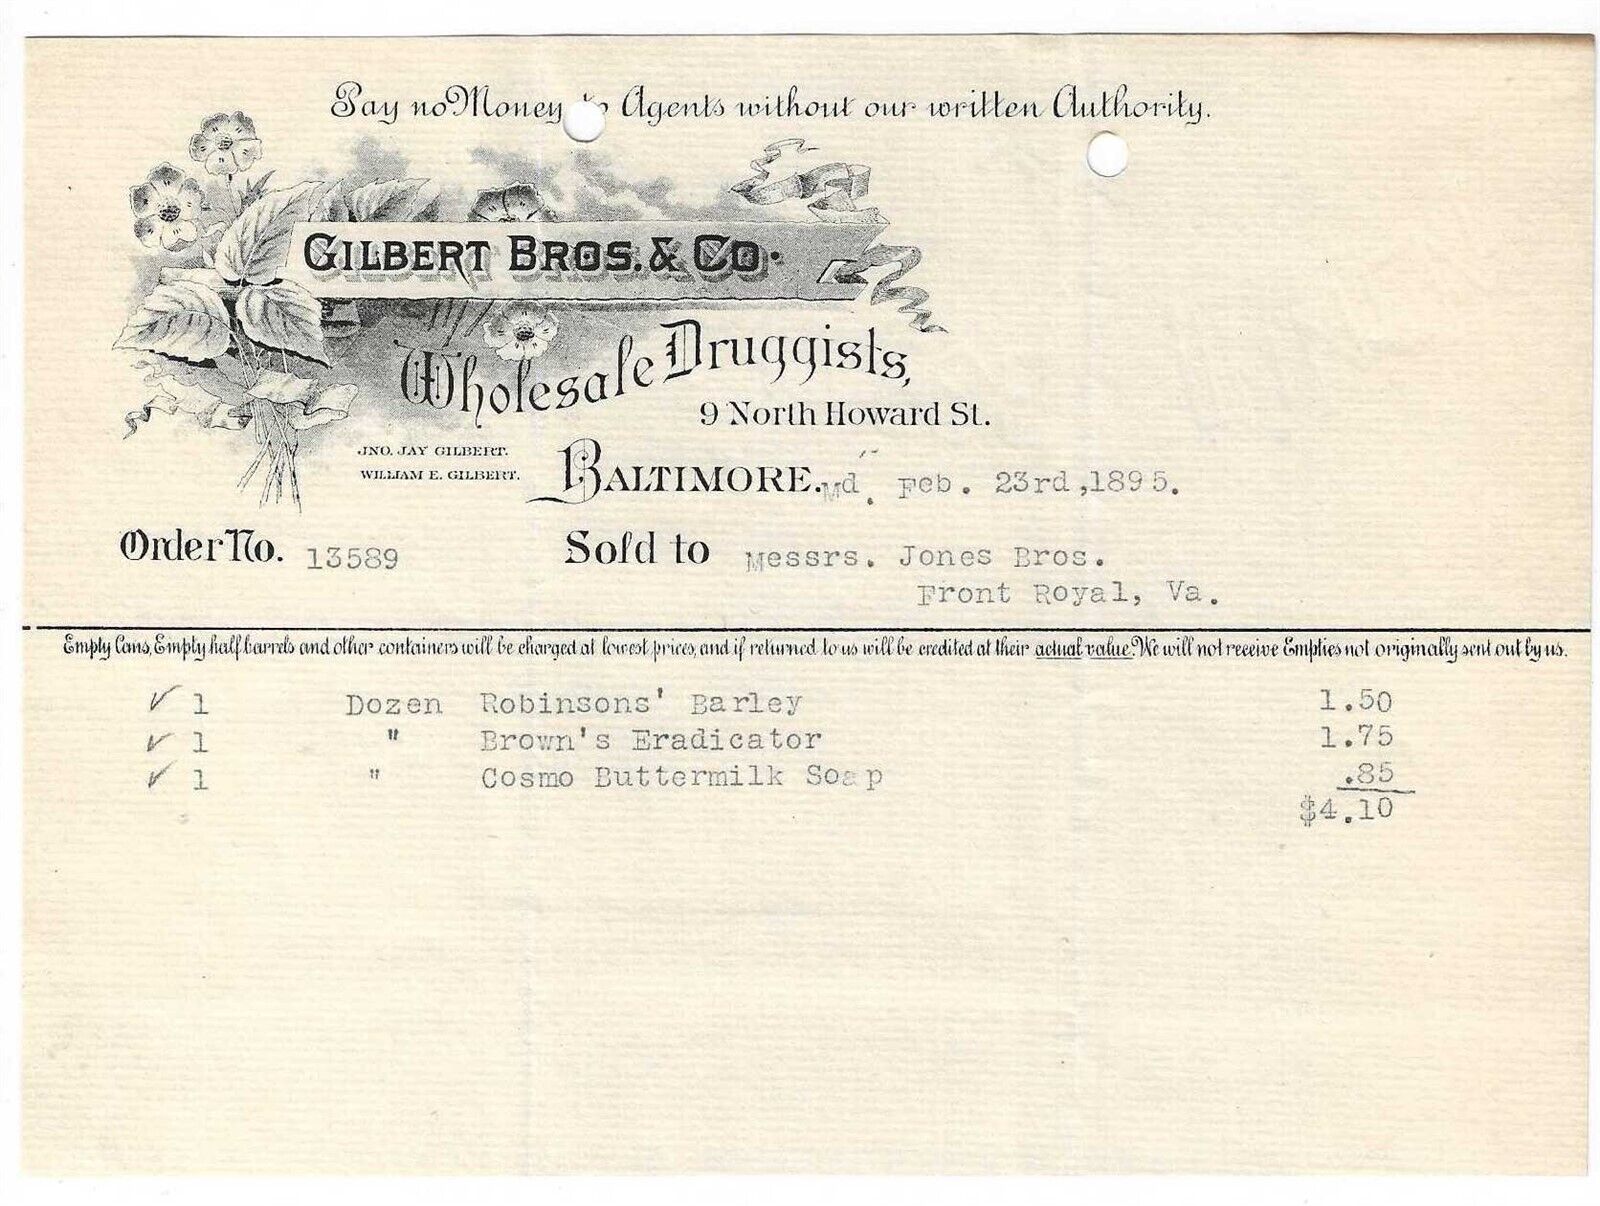 Pay no Money to Agents without our written Authority.
GILBERT BROS. & CO.
Wholesale Druggists,
9 North Howard St.
JNO. JAY GILBERT.
WILLIAM E. GILBERT.
BALTIMORE. Md. Feb. 23rd, 1895.
Order No. 13589 Sold to Messrs. Jones Bros.
Front Royal, Va.
Empty Cans, Empty half barrels and other containers will be charged at lowest prices, and if returned to us will be credited at their actual value. We will not receive Empties not originally sent out by us.
✓ 1 Dozen Robinsons' Barley 1.50
✓ 1 " Brown's Eradicator 1.75
✓ 1 " Cosmo Buttermilk Soap .85
$4.10